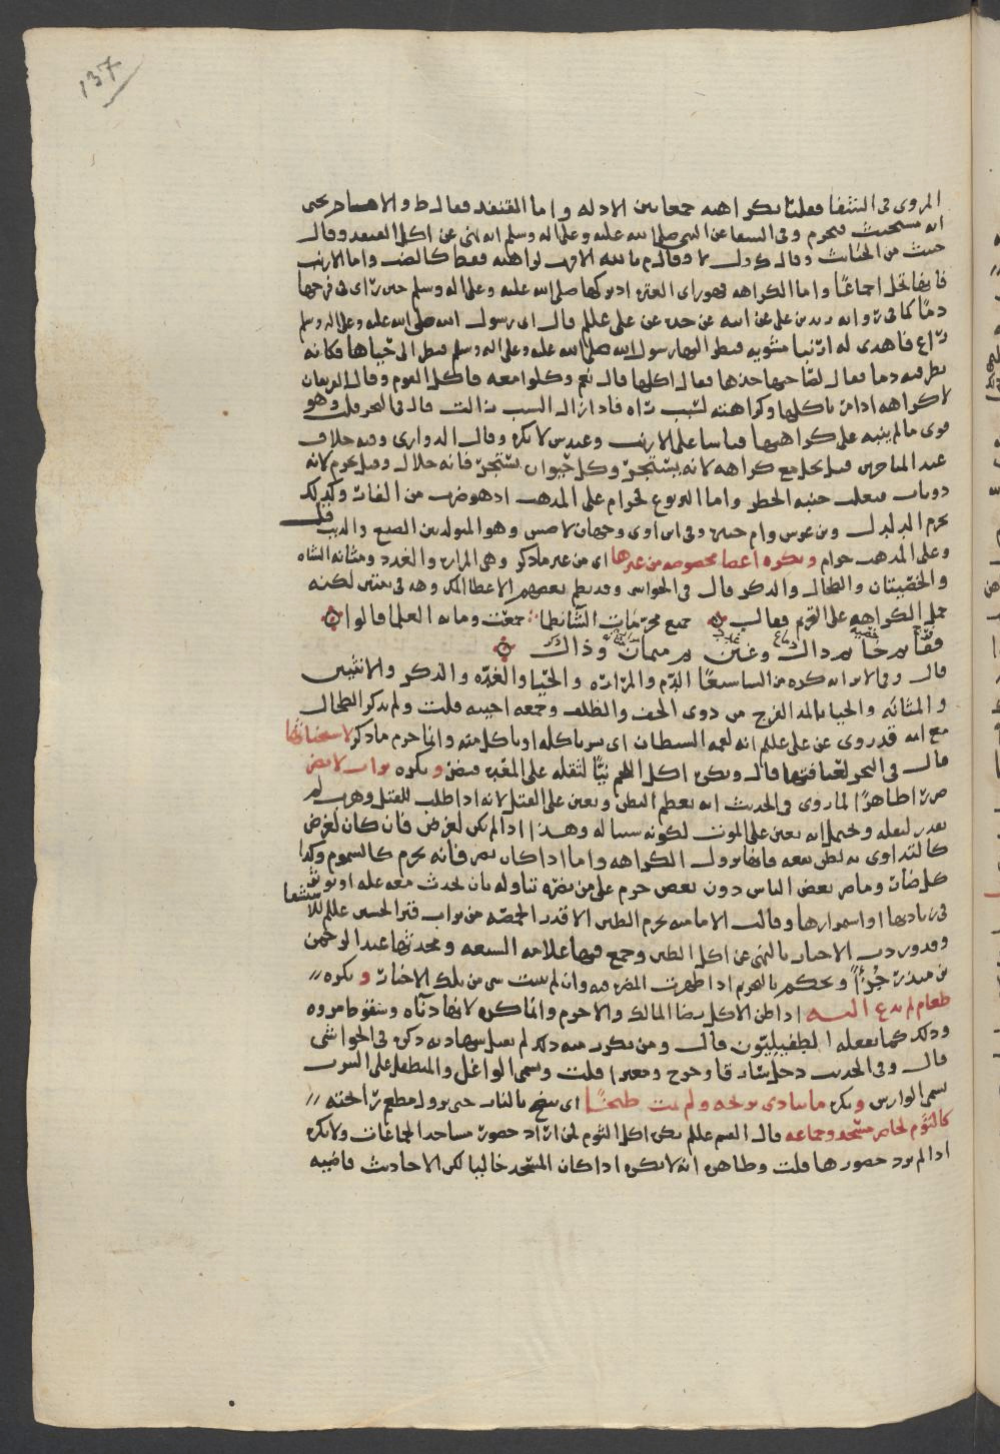 137
المروي في الشفا فعلنا بكراهته جمعا بين الادله واما القنفد فقال ط والامام يحيى
انه مستخبث فيحرم وفي الشفا عن النبي صلى الله عليه وعلى اله وسلم انه نهى عن اكل القنفد وقال
خبيث من الخبائث وقال لا وقال م بالله الاقرب كراهته فقط كالضب واما الارنب
فانها تحل اجماعًا واما الكراهه فهو راي العتره اد تركها صلى الله عليه وعلى اله وسلم حين رآى في فرجها
دمًا كما في روايه زيد بن علي عن ابيه عن جده عن علي عللم قال اتى رسول الله صلى الله عليه وعلى اله وسلم
راع فاهدى له ارنبا مشويه فنظر اليها رسول الله صلى الله عليه وعلى اله وسلم فنظر الى حياها فكانه
نظر فيه دما فقال لصاحبها خذها فقال اكلها قال نعم وكلوا معه فاكل القوم وقال
لا كراهه اذا من ياكلها وكراهته لسبب راه فاذا زال السبب زالت قال في البحر قلت وهو
قوي مالم ينبه على كراهتها قياسا على الارنب وعندس لا تكره وقال الدواري وفيه خلاف
عند المتاخرين قيل يحل مع كراهه لانه يستجتر وكل حيوان يستجتر فانه حلال وقيل يحرم لانه
دوناب فيغلب جنبه الحظر واما اليربوع فحرام على المذهب اد هو ضرب من الفار وكذلك
يحرم الدلدل وبن عرس وام حبين وفي ابن اوى وجهان لا صحابنا وهو المتولد بين الضبع والذيب قلت
وعلى المذهب حرام ويكره اعضا مخصوصه من غيرها اي من غير ما ذكر وهي المراره والغدد ومثانه الشاه
والخصيتان والطحال والذكر قال في الحواشي وقد نظم بعضهم الاعضا المكروهه في بيتين لكنه
حمل الكراهه على التحريم فقال جميع محرمات الشاة نظما جمعت ومابه العلما قالوا
فقا ثم خا ثم دال وغين ثم ميمان وذال
قال وفي الاثر انه كره من الشاه سبعًا الدم والمراره والحيا والغده والذكر والانثيين
والمثانه والحيا بالمد الفرج من ذوي الخف والظلف وجمعه احييه قلت ولم يذكر الطحال
مع انه قد روي عن علي عللم انه لقمه الشيطان اي يسر باكله او ياكل منه وانما حرم ما ذكر لاستخباثها
قال في البحر لعيافتها قال ويكره اكل اللحم نيًا لثقله على المعده فيضر ويكره تراب لا يضر
ضررًا ظاهرًا لما روي في الحديث انه يعظم البطن ويعين على القتل لانه اذا طلب للقتل وهرب لم
يقدر لثقله ويحتمل انه يعين على الموت لكونه سببا له وهذا اذا لم يكن لغرض فان كان لغرض
كالتداوي به لظن نفعه فانها تزول الكراهه واما اذا كان يضر فانه يحرم كالسموم وكذا
كل ضار وما ضر بعض الناس دون بعض حرم على من يضره تناوله بان يحدث معه عله او يوثر
في زيادتها او استمرارها وقالت الاماميه يحرم الطين الا قدر الحمصه من تراب قبر الحسين عللم للاستشفا
وقد وردت الاخبار بالنهي عن اكل الطين وجمع فيها علامه الشيعه ومحدثها عبد الرحمن
بن منده جزءًا ويحكم بالتحريم اذا ظهرت المضره فيه وان لم يثبت شي من تلك الاخبار ويكره
طعام لم يدع اليه اذا ظن الاكل رضا المالك والا حرم وانما كره لانها دناه وسقوط مروه
وذلك كما يفعله الطفيليون قال ومن تكرر منه ذلك لم تقبل شهادته ذكره في الحواشي
قال وفي الحديث دخل سارقا وخرج مغيرا قلت ويسمى الواغل والمتطفل على الشرب
يسمى الوارش ويكره ما يتاذى بريحه ولم يمت طبخًا اي ينضج بالنار حتى يزول مطعم رائحته
كالثوم لحاضر مسجد وجماعه قال القسم عللم يكره اكل الثوم لمن اراد حضور مساجد الجماعات ولا يكره
اذا لم يرد حضورها قلت وظاهره انه لا يكره اذا كان المسجد خاليا لكن الاحاديث قاضيه